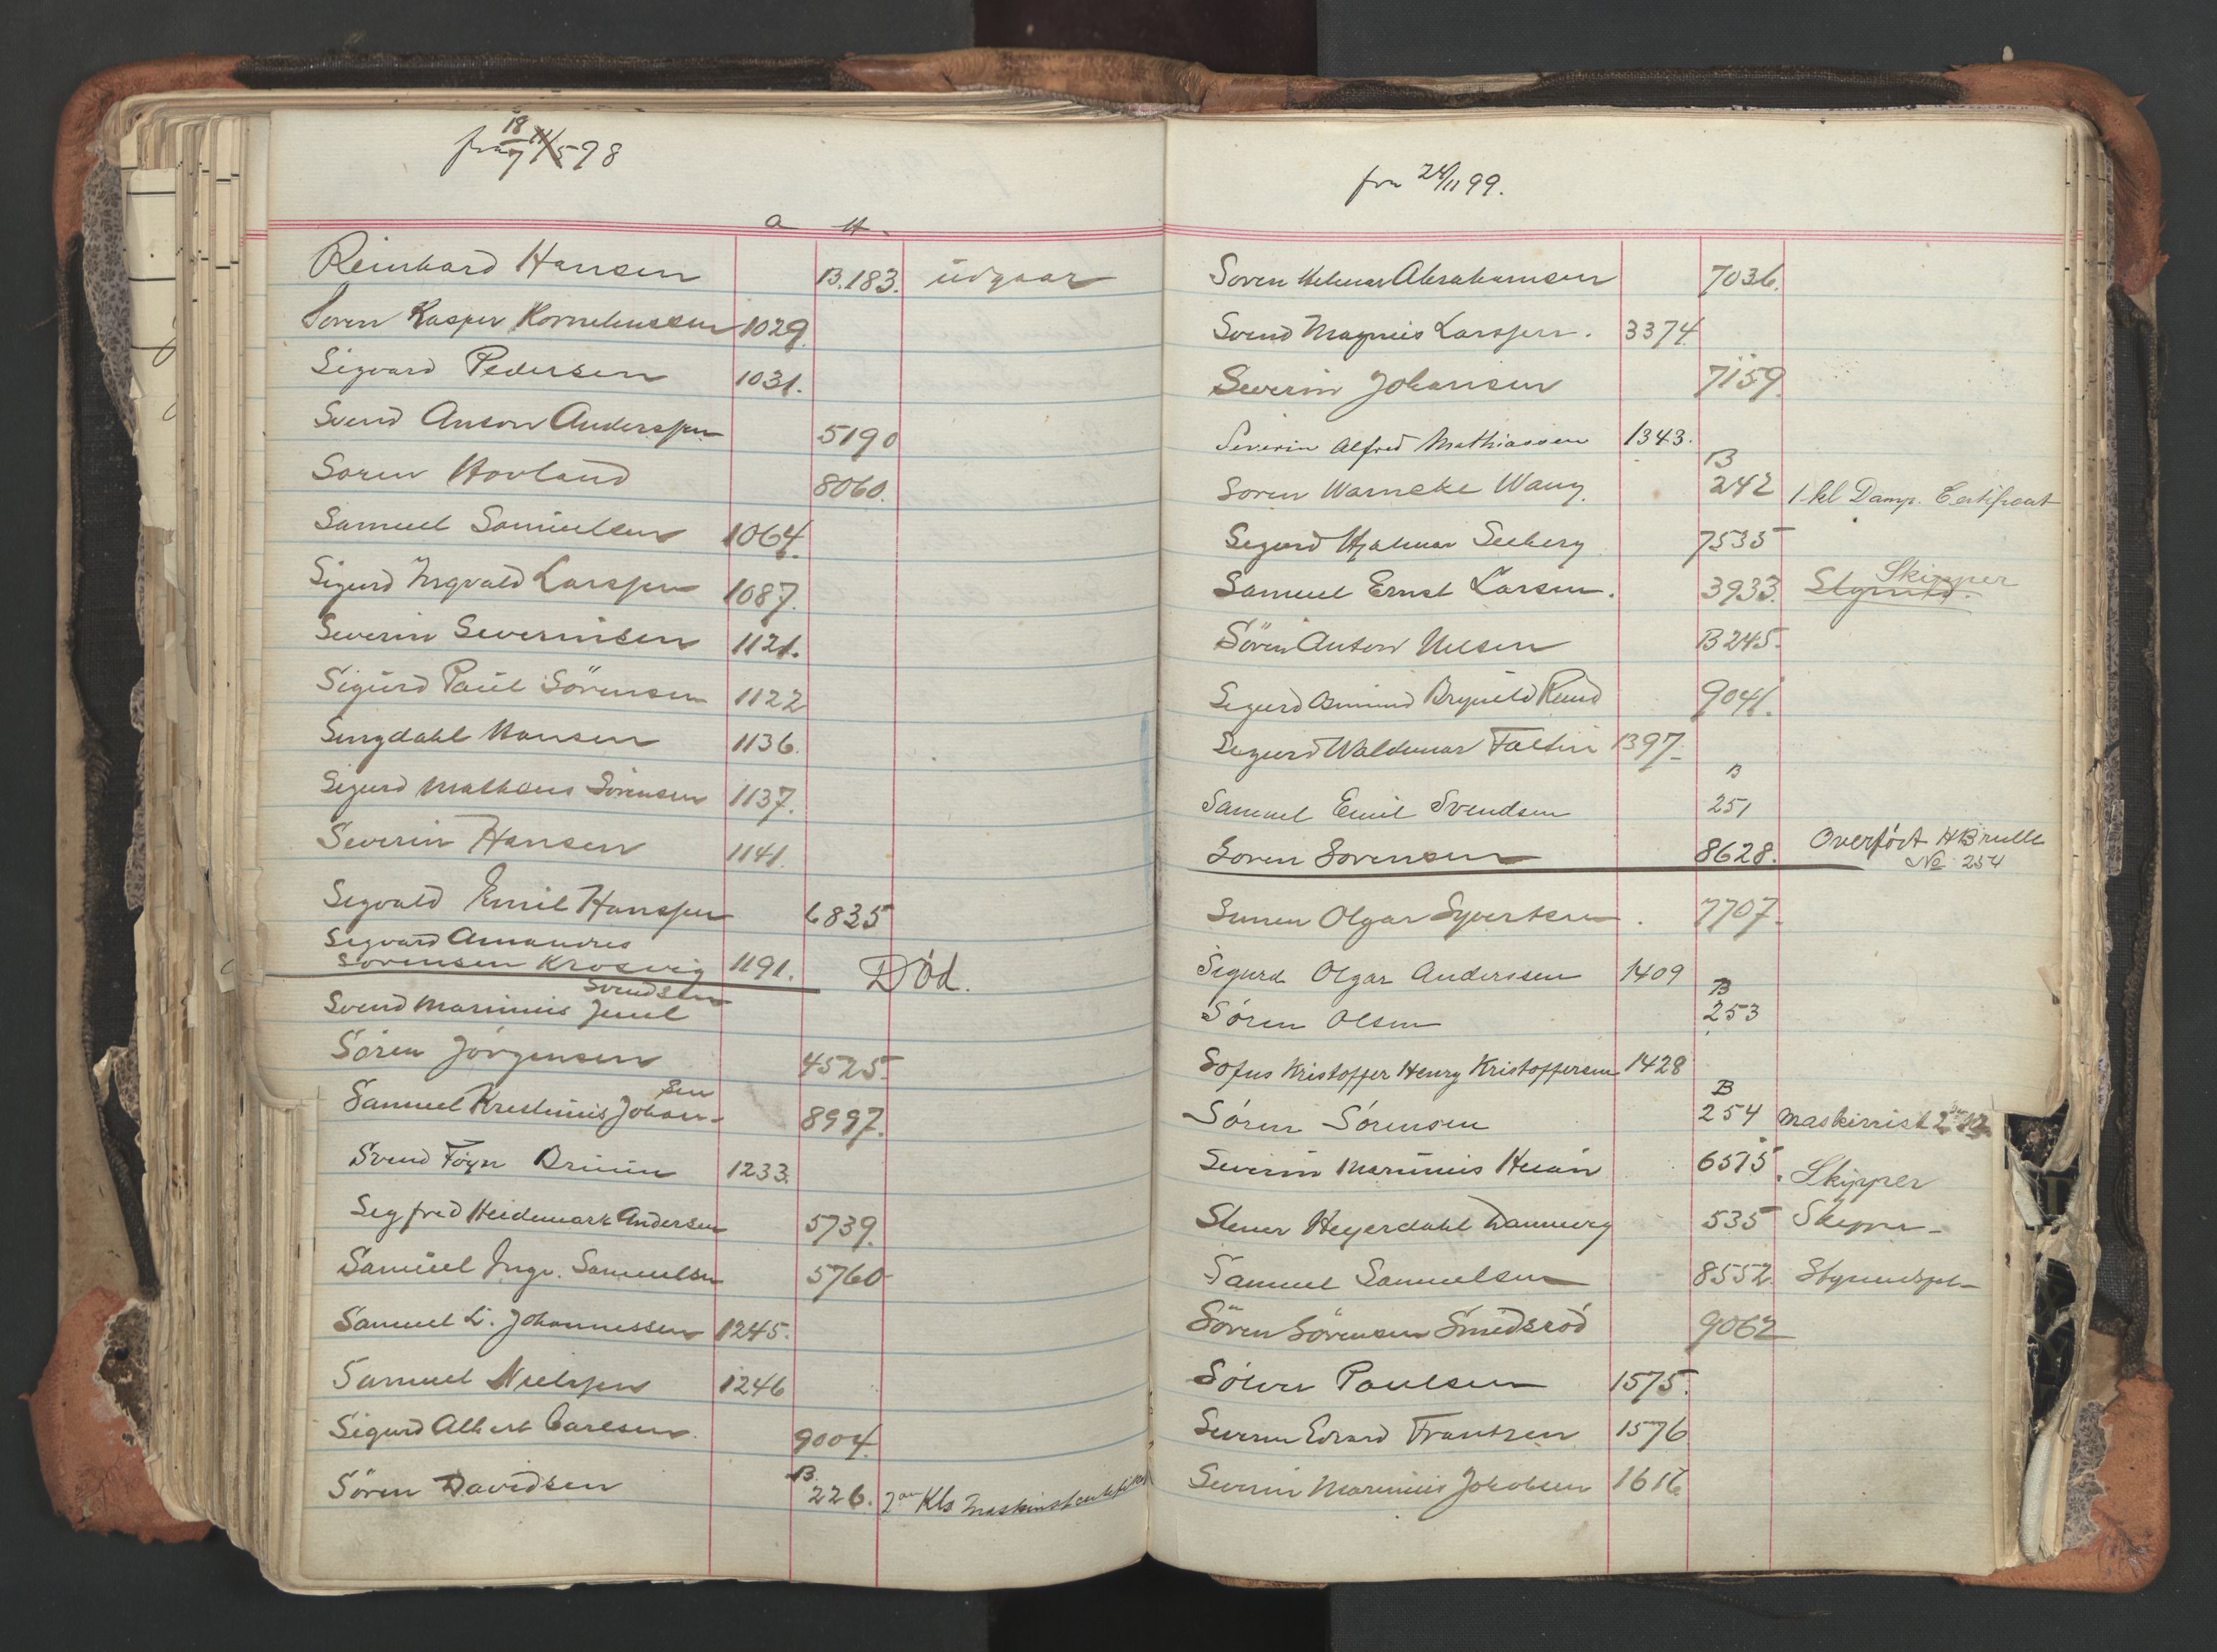 fra 18/7 98
a H.
Reinhard Hansen B.183. udgaar
Soren Kasper Korneliussen 1029
Sigvard Pedersen 1031.
Svend Anton Anderssen 5190
Soren Hovland 8060.
Samuel Samuelsen 1064.
Sigurd Ingvald Larssen 1087.
Severin Severinsen 1121.
Sigurd Paul Sörensen 1122
Sengdahl Hansen 1136.
Sigurd Matheus Sörensen 1137.
Severin Hansen 1141.
Sigvald Emil Hanssen 6835
Sigvard Amandus
Sorensen Krosvig 1191. Död.
Svendsen
Svend Marinius Juul
Sören Jörgensen 4525.
sen
Samuel Kristinius Johan- 8997.
Svend Föyn Bruun 1233.
Segfred Heidemark Andersen 5739.
Samuel Ingv. Samuelsen 5760
Samuel L. Johannessen 1245.
Samuel Nielssen 1246
Sigurd Albert Carlsen. 9004.
Sören Davidsen B. 226. 2den Kls
fra 24/11 99.
Soren Helmer Abrahamsen 7036.
Svend Magnus Larssen. 3374.
Severin Johansen 7159.
Severin Alfred Mathiassen 1343.
Soren Warncke Wang. B 242 1-kl Damp. Certificat
Sigurd Hjalmar Seeberg 7535
Skipper
Samuel Ernst Larsen. 3933. Styrmd.
Sören Anton Nelsen B 245.
Sigurd Brynild Ruud 9041.
Sigurd Waldemar Faltin 1397-
Samuel Emil Svendsen B 251
Soren Sorensen 8628. Overført H Brulle
No 254
Olgar Syvertsen. 7707.
Sigurd Olgar Anderssen 1409
Sören Olsen B 253
Sofus Kristoffer Henry Kristoffersen 1428
Sören Sörensen B 254 Maskinist 2den
Severin Marinius 6575. Skipper
Heyerdahl 535 Skipper-
Samuel Samuelsen 8552.
Sören Sörensen Smedsröd 9062
Sölver Paulsen 1575.
Severin Edvard Frantzen 1576
Severin Marinius Jakobsen 1616